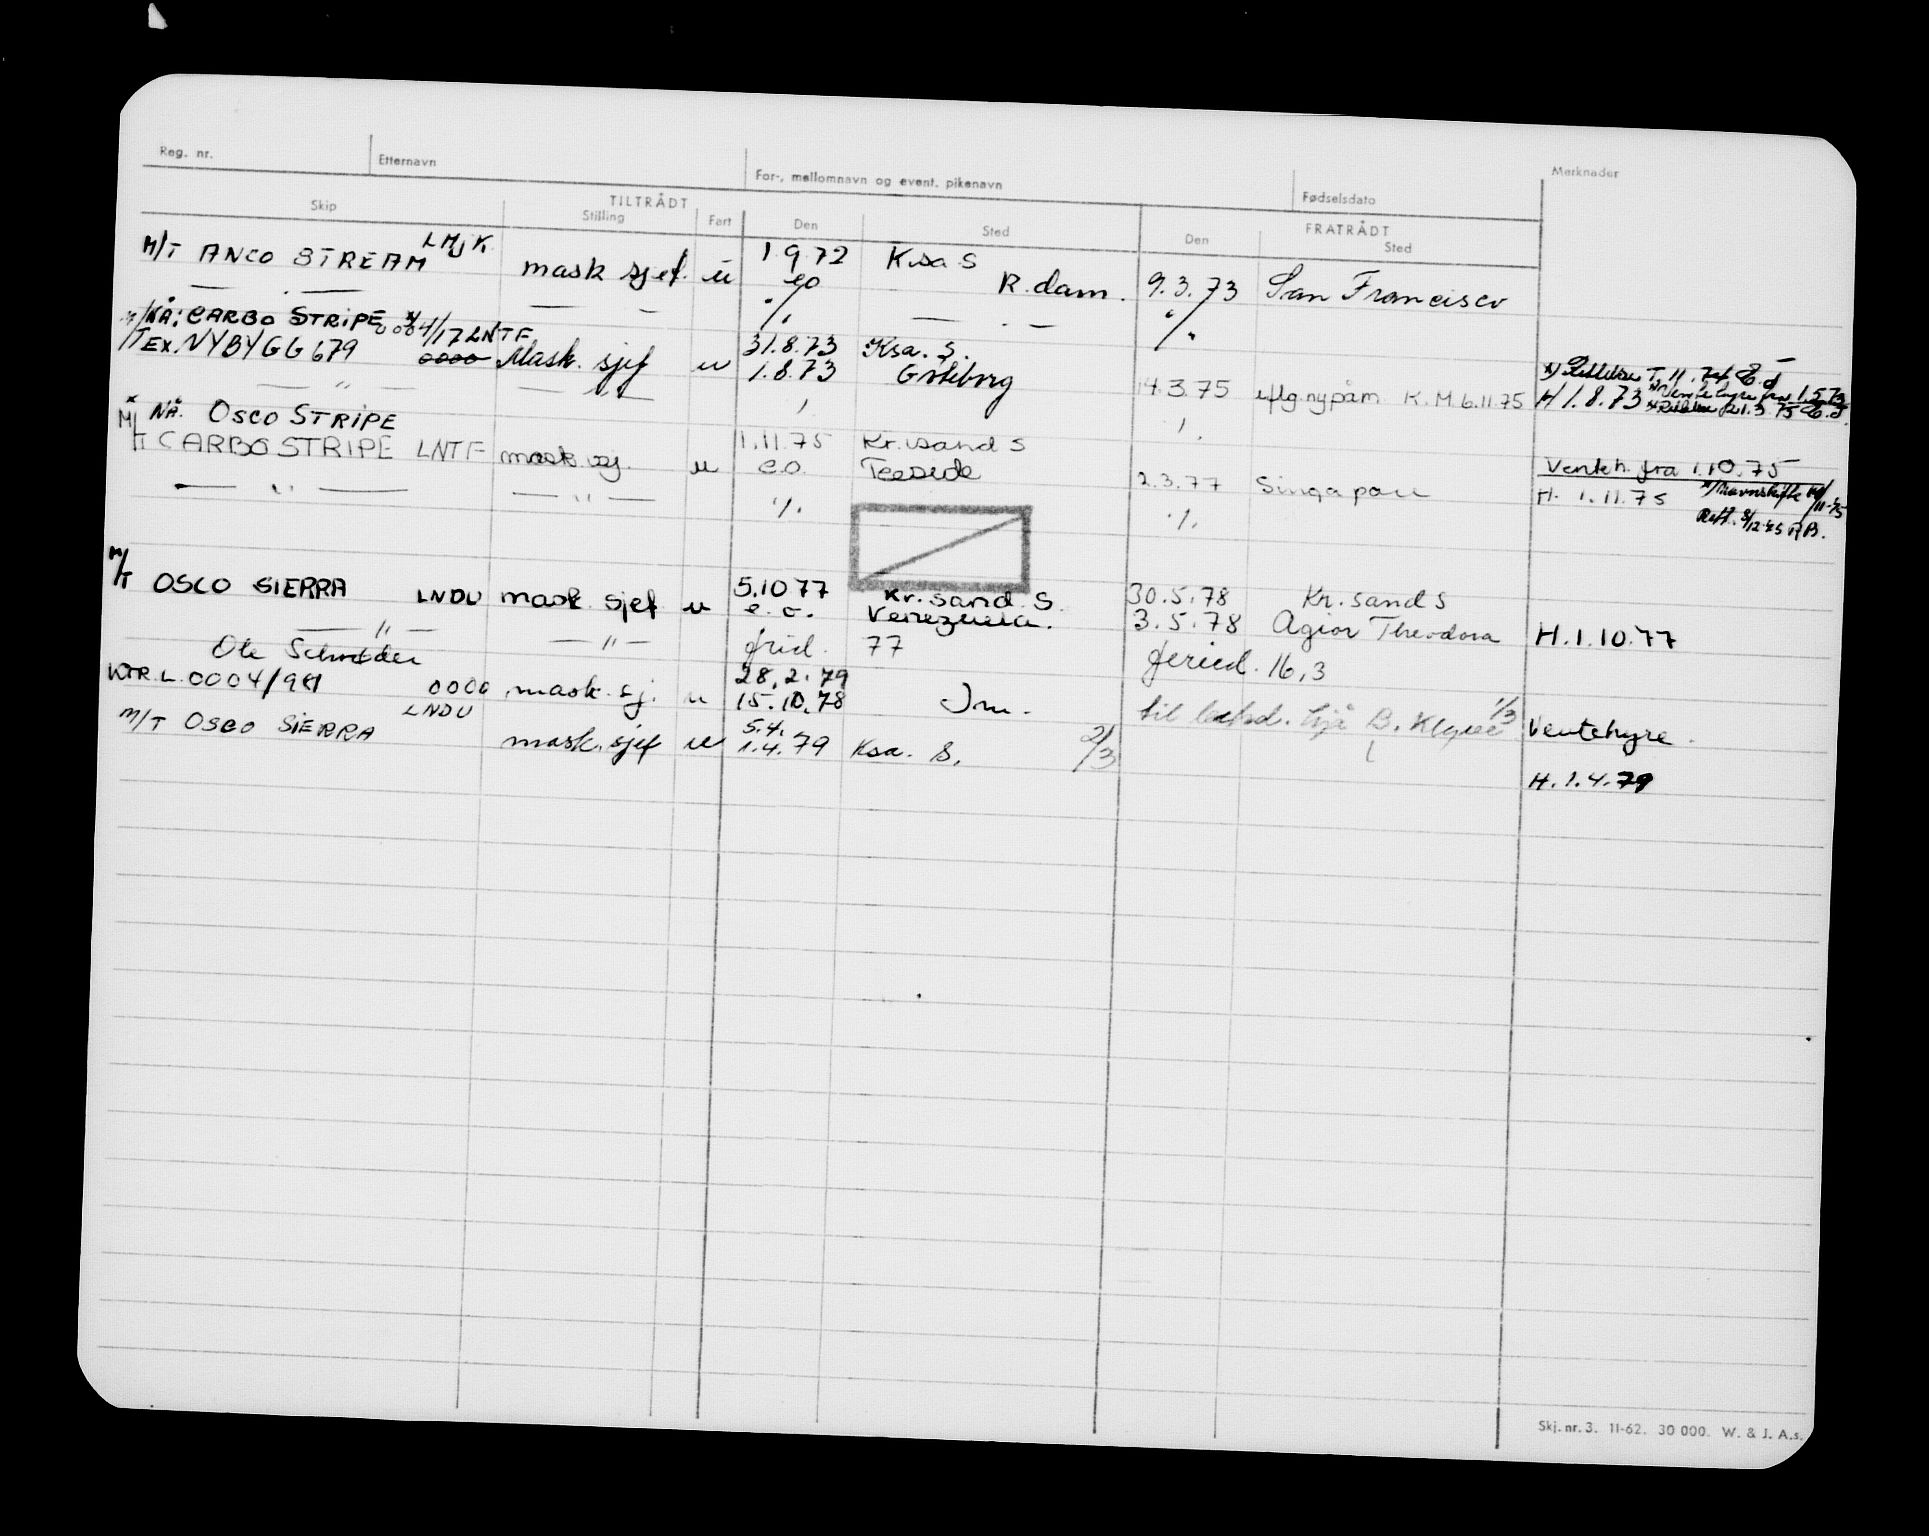 Reg. nr. Etternavn For-, mellomnavn og event. pikenavn Fødselsdato Merknader
TILTRÅDT FRATRÅDT
Skip Stilling Fart Den Sted Den Sted
M/T ANCO STREAM LMJK mask sjef. u 1.9.72 K.sa S
— . — eo R.dam. 9.3.73 San Francisco
NÅ: CARBO STRIPE x/ 0004/17 LNTF — — ·/. — . — ·/.
M/T Ex. NYBYGG 679 0000 Mask. sjef u 31.8.73 Ksa. S. x) Rettelse T. 11.74
— " — — " — 1.8.73 Göteborg 14.3.75 eflg nypåm K.M. 6.11.75 H 1.8.73 Ventehyre fra 1.5.73
21.3.75
x NÅ. OSCO STRIPE
M/T CARBO STRIPE LNTF mask. sj. u 1.11.75 Kr.sand S Venteh. fra 1.10.75
— " — — " — e.o. Teeside 2.3.77 Singapore H. 1.11.75 x/Navneskifte
·/. ·/. Rett. 8/12-75 RB.
M/T OSCO SIERRA LNDU mask. sjef u 5.10 77 Kr.sand. S. 30.5.78 Kr.sand S
— " — — " — e.o. Venezuela. 3.5.78 Agioi Theodora H.1.10.77
Ole Schrøder frid. 77 feried. 16,3
KTR.L.0004/981 0000 mask. sj. u 28.2.79
15.10.78 til 1/3 Ventehyre.
M/T OSCO SIERRA LNDU mask. sjef u 5.4.
1.4.79 Ksa. S. 2/3
H.1.4.79
Skj. nr. 3. 11-62. 30 000. W. & J. A.s.